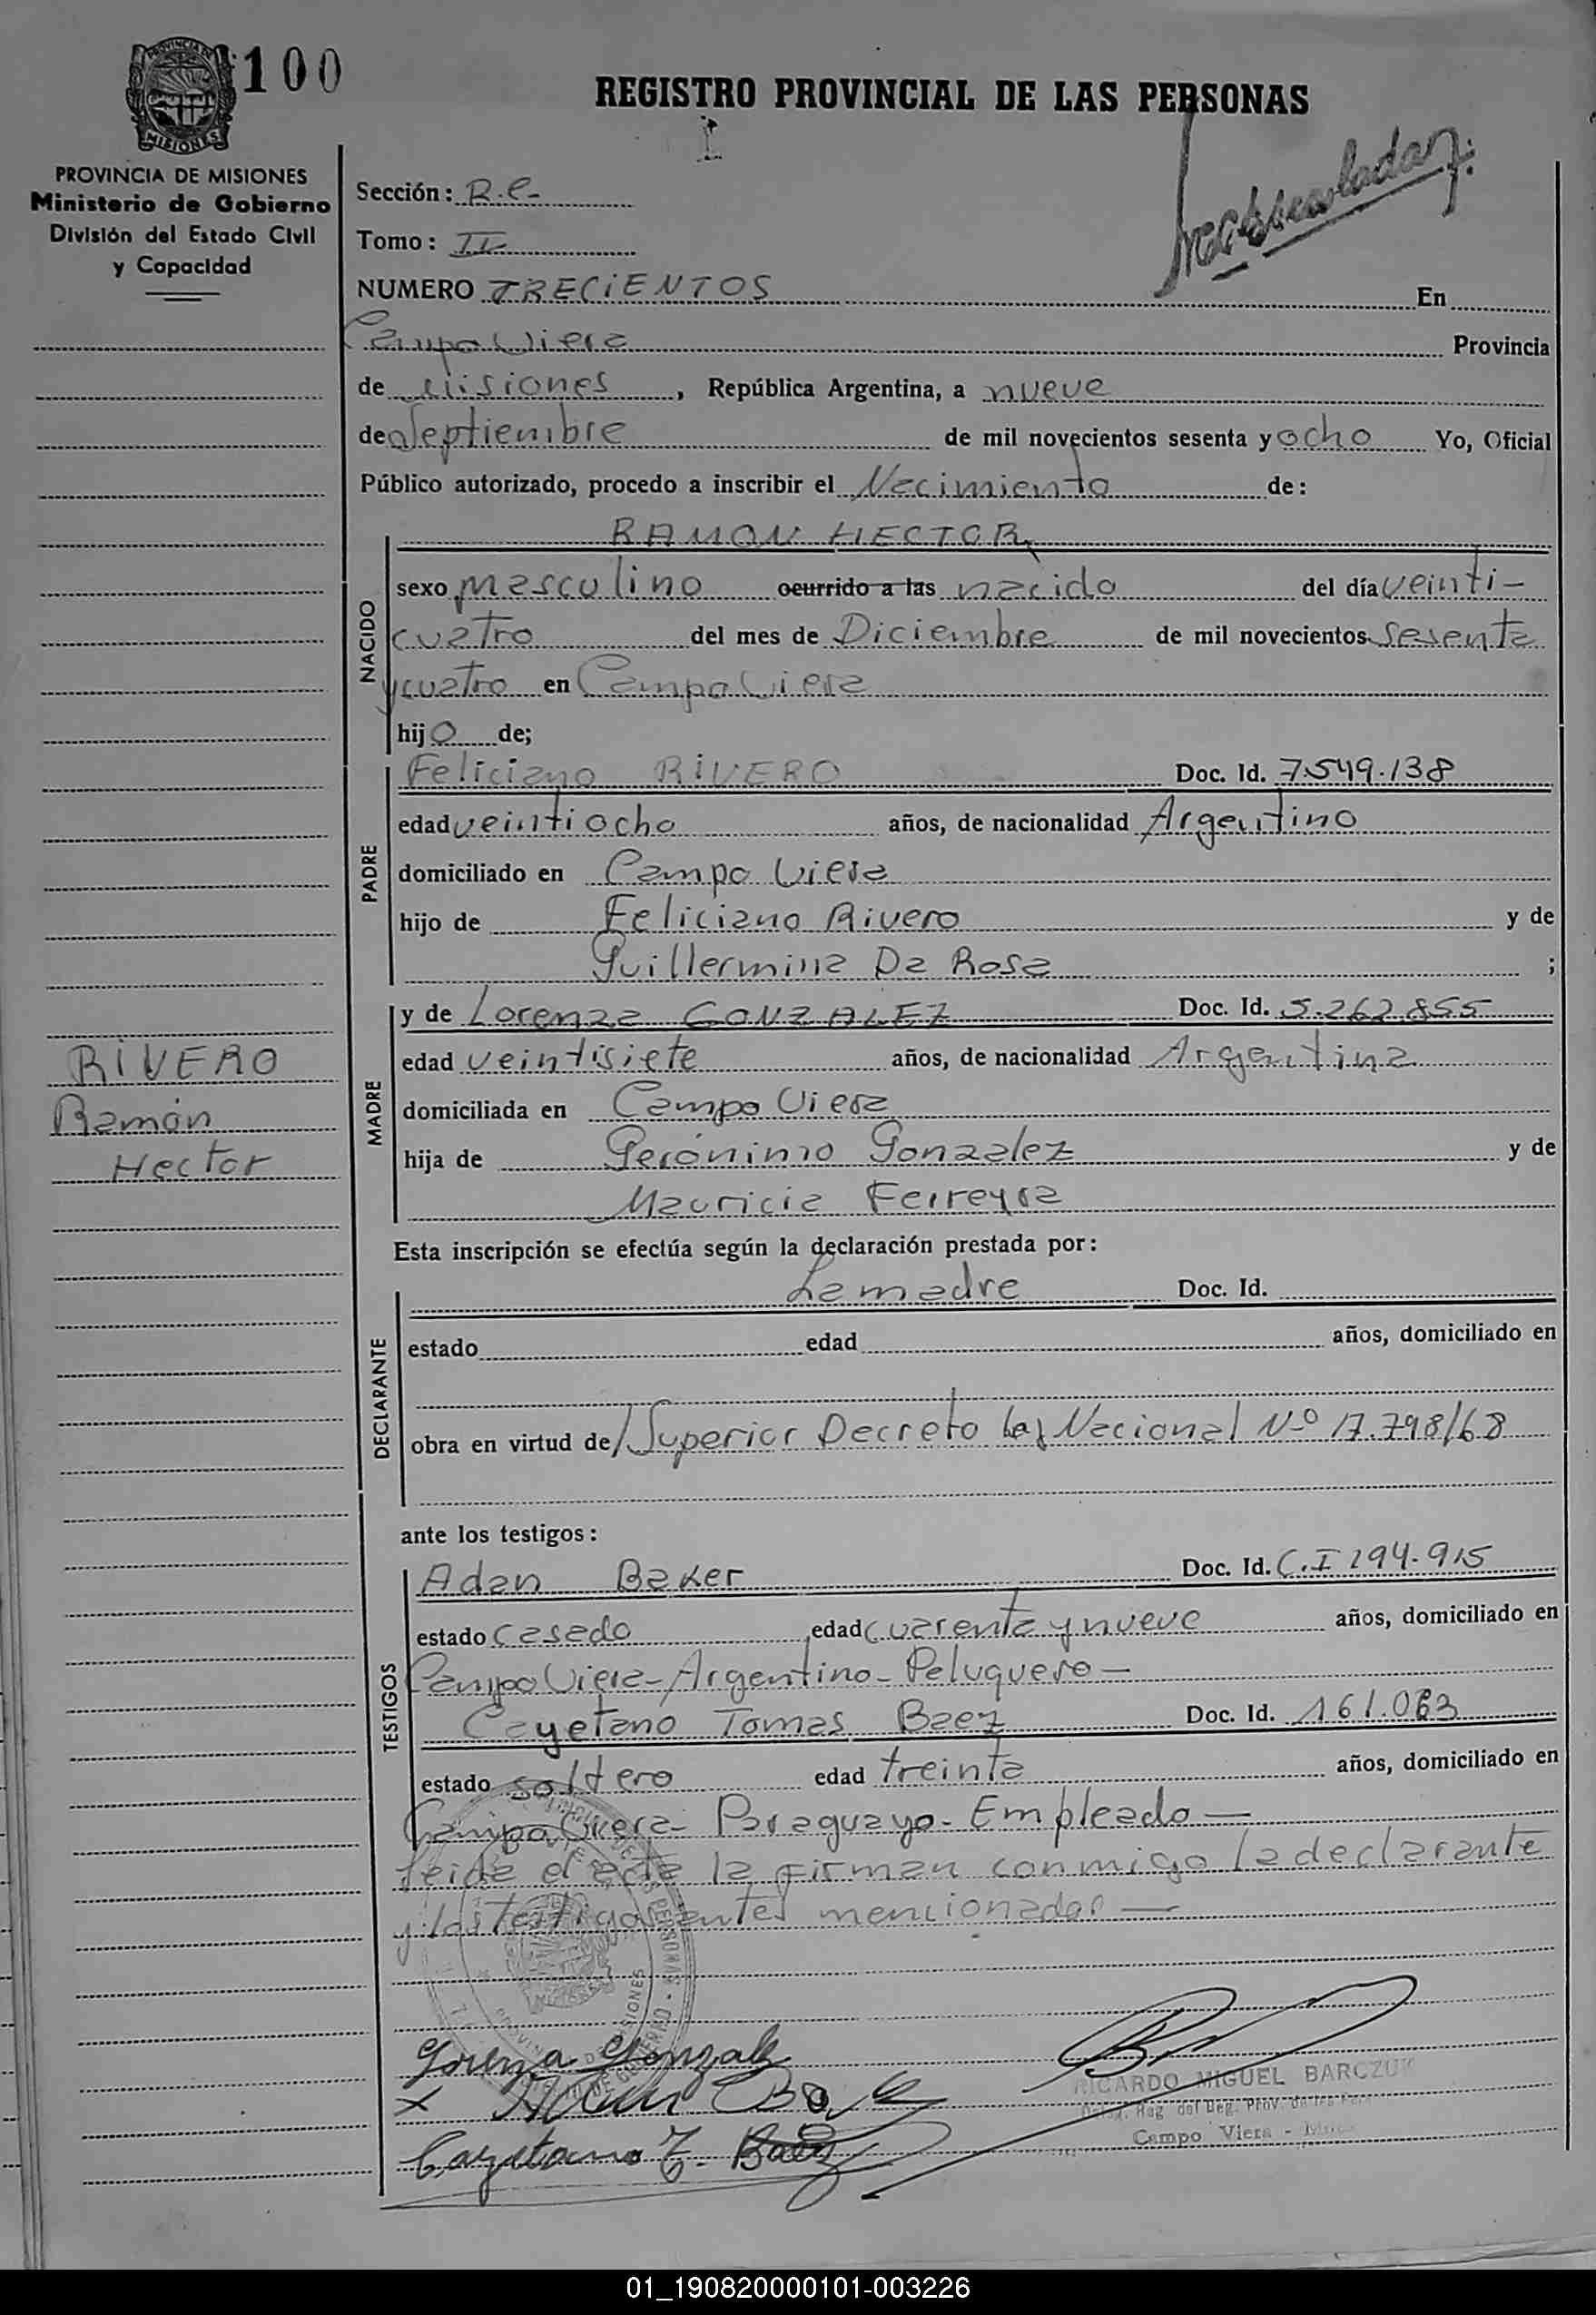 100
REGISTRO PROVINCIAL DE LAS PERSONAS
PROVINCIA DE
MISIONES
PROVINCIA DE MISIONES
Ministerio de Gobierno
División del Estado Civil
y Capacidad
Sección: R.e-
Tomo: II
NUMERO TRECIENTOS En
Campo Viera Provincia
de Misiones, República Argentina, a nueve
de Septiembre de mil novecientos sesenta y ocho Yo, Oficial
Público autorizado, procedo a inscribir el Nacimiento de:
RAMON HECTOR
NACIDO
sexo masculino ocurrido a las nacido del día veinti-
cuatro del mes de Diciembre de mil novecientos sesenta
y cuatro en Campo Viera
hijo de;
PADRE
Feliciano RIVERO Doc. Id. 7.549.138
edad veintiocho años, de nacionalidad Argentino
domiciliado en Campo Viera
hijo de Feliciano Rivero y de
Guillermina Da Rosa ;
MADRE
y de Lorenza GONZALEZ Doc. Id. 5.262.855
edad veintisiete años, de nacionalidad Argentina
domiciliada en Campo Viera
hija de Gerónimo Gonzalez y de
Mauricia Ferreyra
RIVERO
Ramón
Hector
Esta inscripción se efectúa según la declaración prestada por:
DECLARANTE
La madre Doc. Id.
estado edad años, domiciliado en
obra en virtud de/Superior Decreto Ley Nacional Nº 17.798/68
ante los testigos:
TESTIGOS
Adan Baker Doc. Id. C.I 194.915
estado casado edad cuarenta y nueve años, domiciliado en
Campo Viera-Argentino-Peluquero-
Cayetano Tomas Baez Doc. Id. 161.063
estado soltero edad treinta años, domiciliado en
Campo Viera- Paraguayo-Empleado-
Leida el acta la firman conmigo la declarante
y los testigos antes mencionados-
Lorenza Gonzalez
Cayetano T. Baez
RICARDO MIGUEL BARCZUK
Campo Viera -
01_190820000101-003226